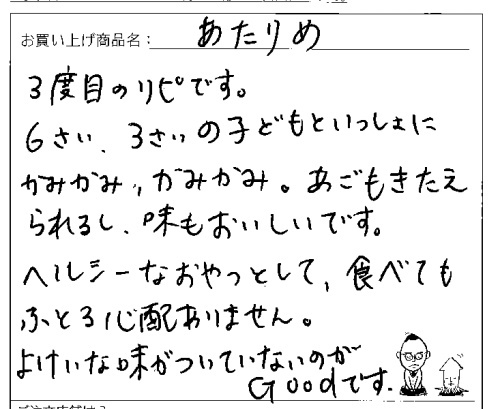 お買い上げ商品名： あたりめ
3度目のリピです。
6さい、3さいの子どもといっしょに
かみかみ,,かみかみ。あごもきたえ
られるし、味もおいしいです。
ヘルシーなおやつとして、食べても
ふとる心配ありません。
よけいな味がついていないのが
Goodです.